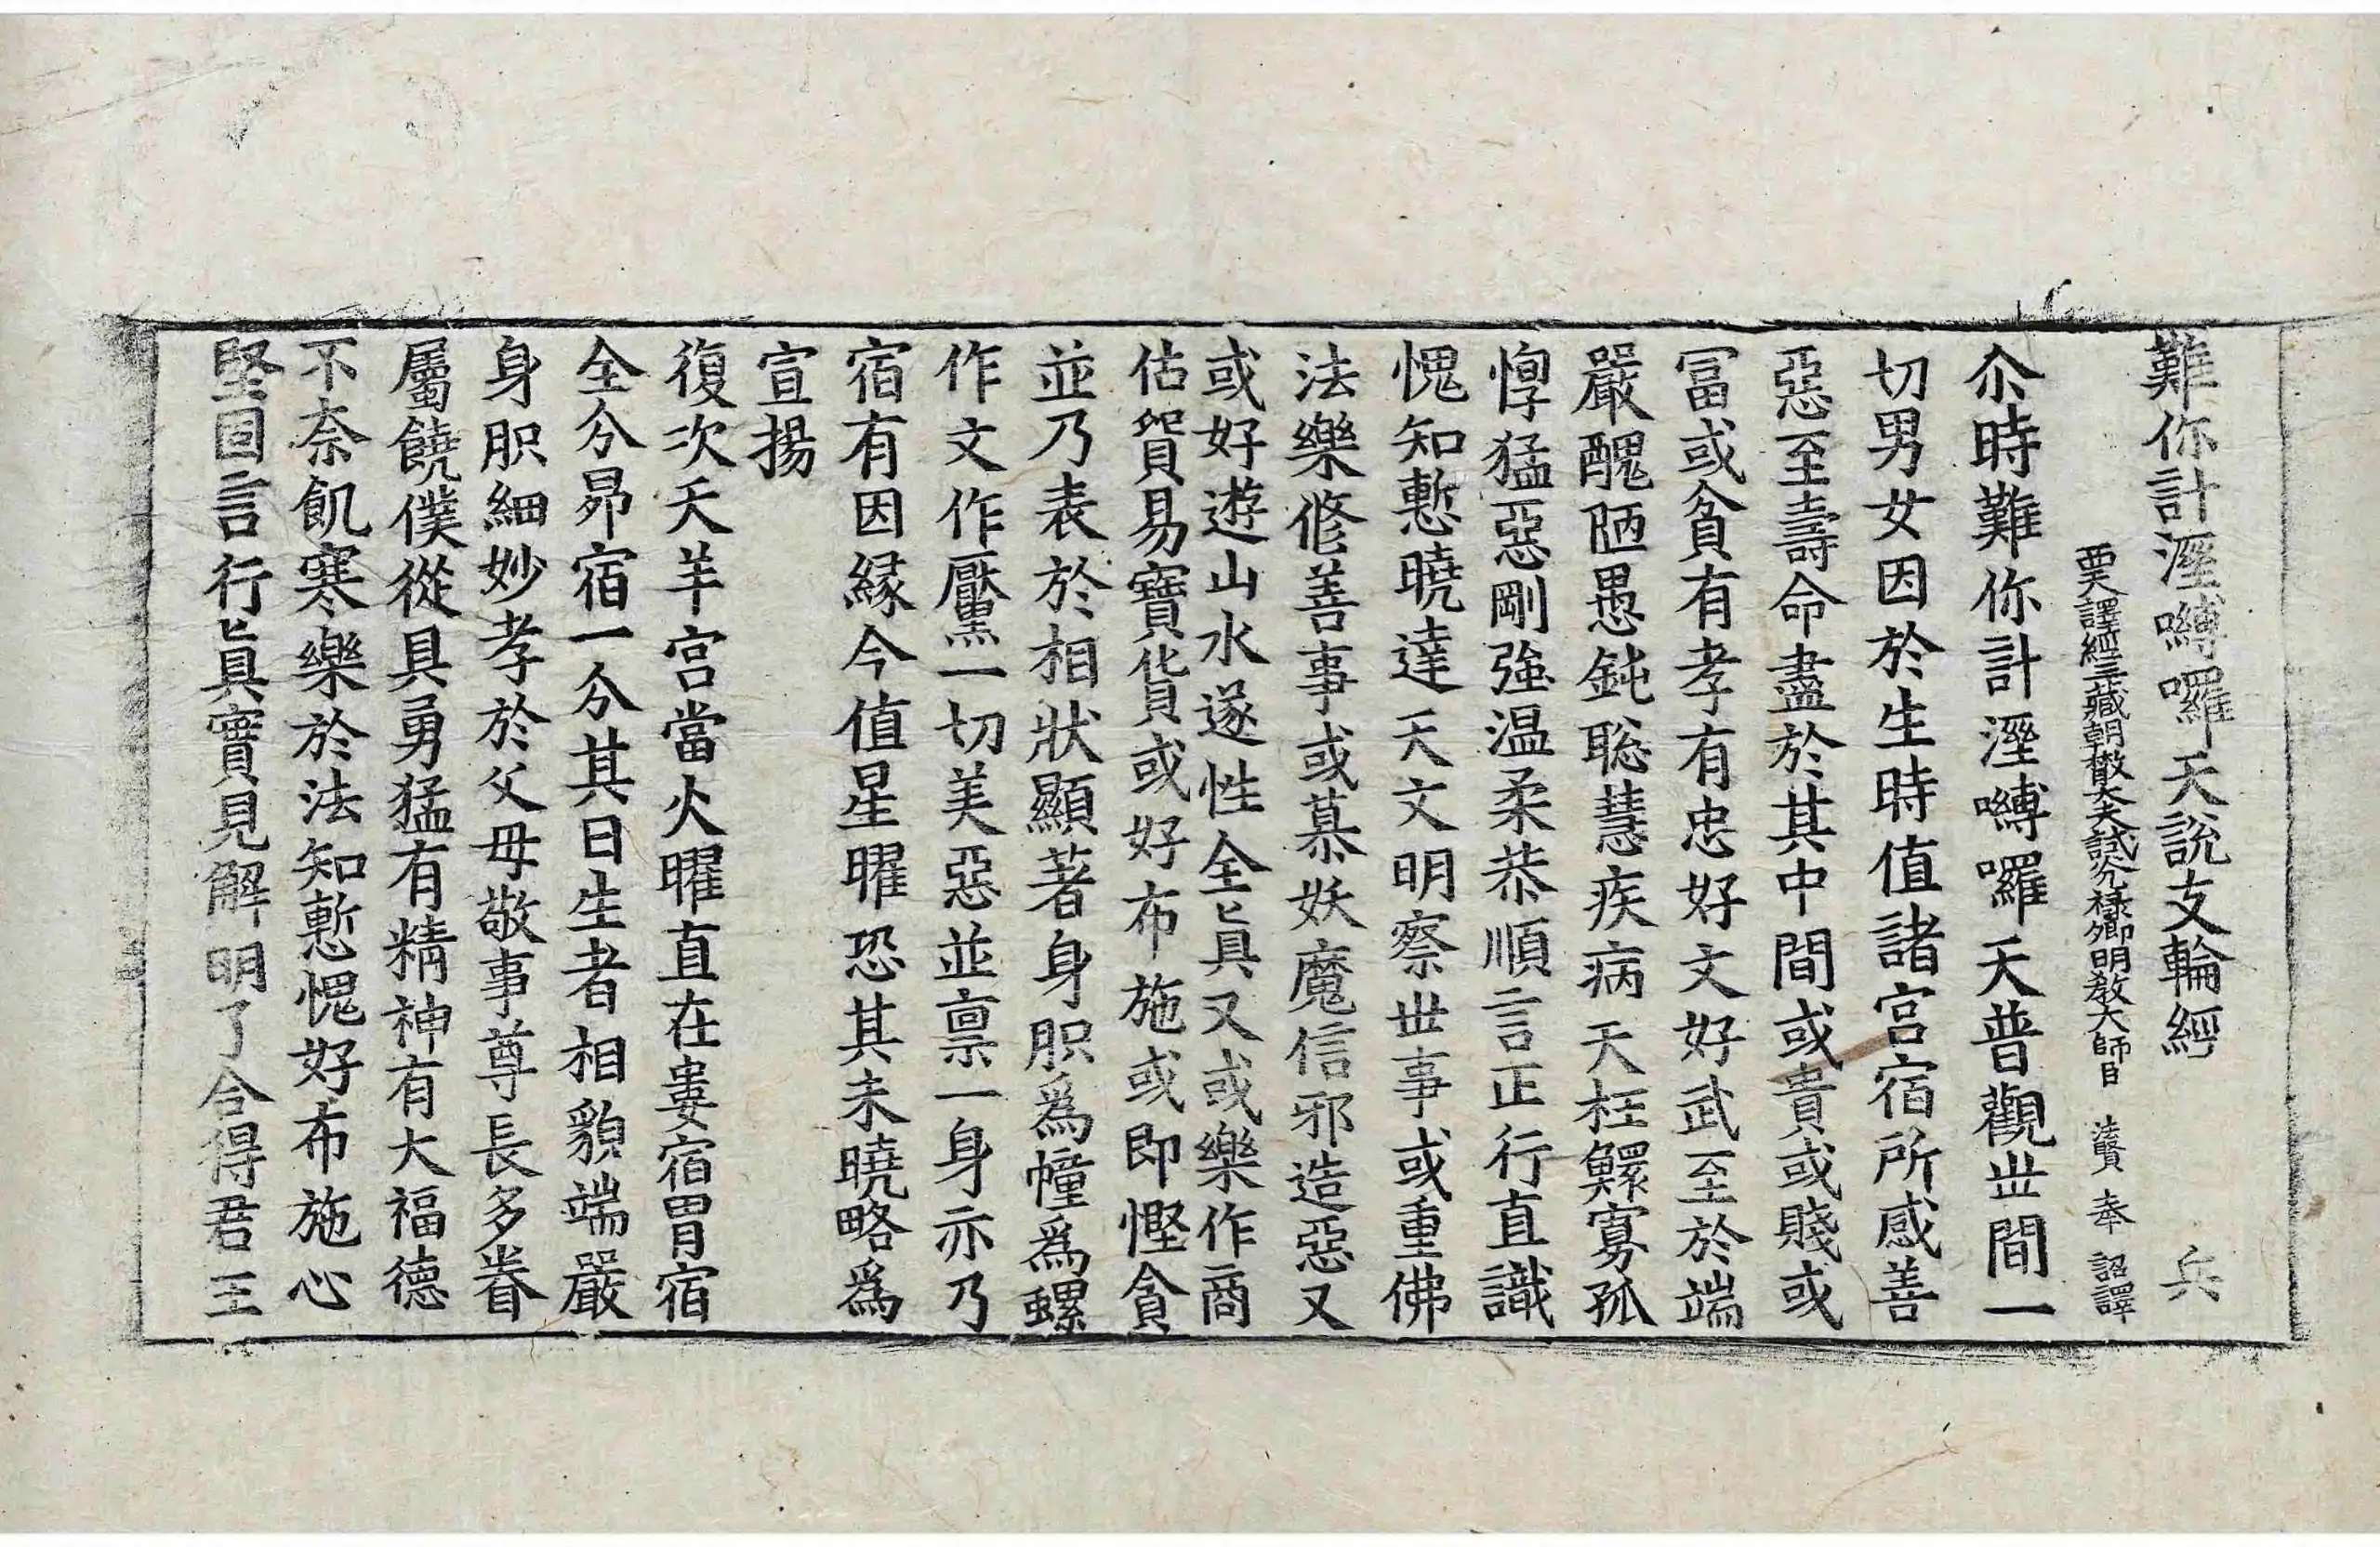 難你計濕嚩囉天說支輪經 兵
西天譯經三藏朝散大夫試光祿卿明教大師臣 法賢 奉 詔譯
尒時難你計濕嚩囉天普觀世間一
切男女因於生時值諸宮宿所感善
惡至壽命盡於其中間或貴或賤或
冨或貧有孝有忠好文好武至於端
嚴醜陋愚鈍聡慧疾病夭枉鰥寡孤
惸猛惡剛強温柔恭順言正行直識
愧知慙曉達天文明察世事或重佛
法樂修善事或慕妖魔信邪造惡又
或好遊山水遂性全眞又或樂作商
估貿易寶貨或好布施或即慳貪
並乃表於相狀顯著身胑爲幢爲螺
作文作黶一切美惡並稟一身亦乃
宿有因緣今值星曜恐其未曉略爲
宣揚
復次天羊宮當火曜直在婁宿胃宿
全分昴宿一分其日生者相貌端嚴
身胑細妙孝於父母敬事尊長多眷
屬饒僕從具勇猛有精神有大福德
不奈飢寒樂於法知慙愧好布施心
堅固言行眞實見解明了合得君王